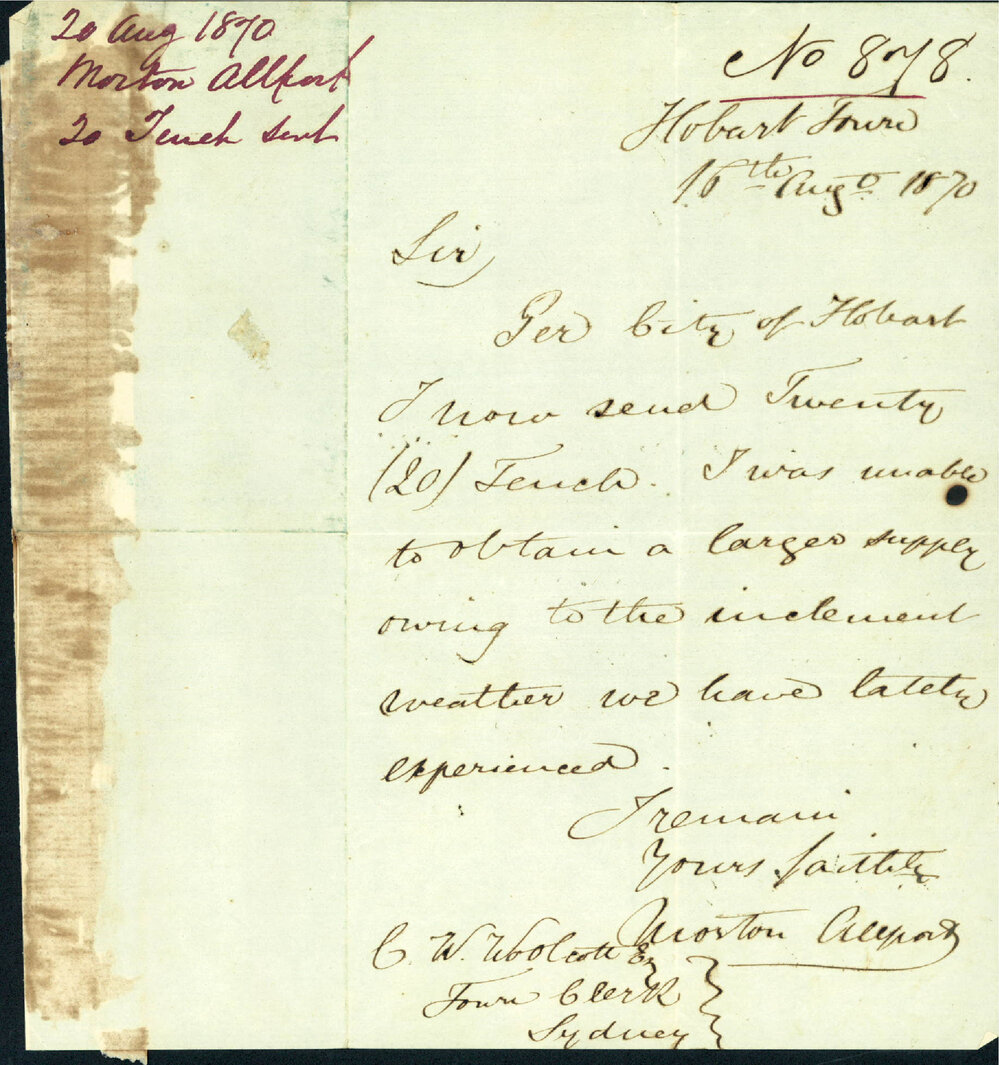 20 Aug 1870
Morton Allport
20 Tench sent
No 878.
Hobart Town
16th Augo 1870
Sir
Per City of Hobart
I now send Twenty
(20) Tench. I was unable
to obtain a larger supply
owing to the inclement
weather we have lately
experienced.
I remain
Yours faithly
Morton Allport
C. W. Woolcott Eq
Town Clerk
Sydney